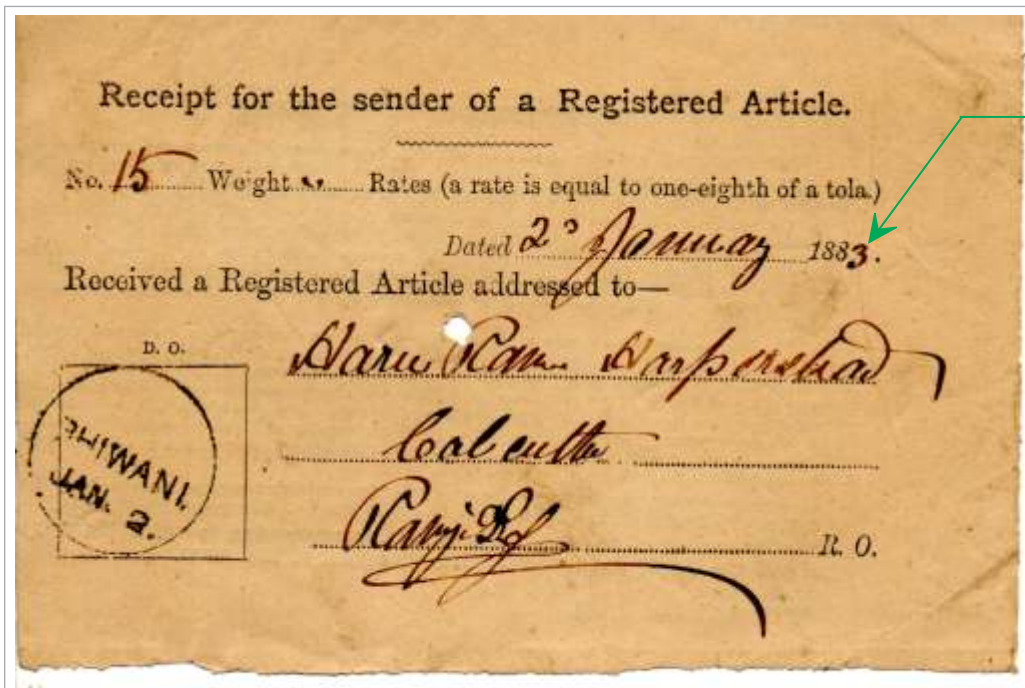 Receipt for the sender of a Registered Article.
No. 15 Weght Rates (a rate is equal to one-eighth of a tola.)
Dated 2 January 1883.
Received a Registered Article addressed to—
D. O.
Ram
BHIWANI.
JAN. 2.
Calcutta
R. O.